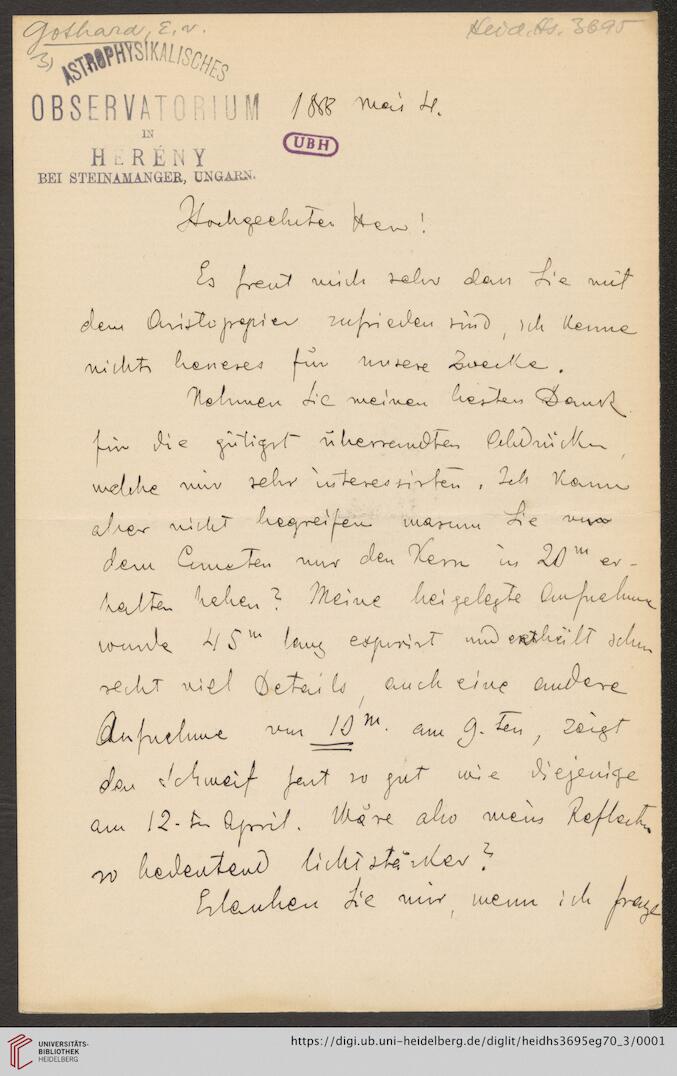 Gothard, E. v.
Heid. Hs. 3695
3)
ASTROPHYSIKALISCHES
OBSERVATORIUM
IN
HERÉNY
BEI STEINAMANGER, UNGARN.
1888 Mai 4.
UBH
Hochgeehrter Herr!
Es freut mich sehr dass Sie mit
dem Aristopapier zufrieden sind, ich kenne
nichts besseres für unsere Zwecke.
Nehmen Sie meinen besten Dank
für die gütigst übersandten Abdrücke,
welche mir sehr interessirten. Ich kann
aber nicht begreifen warum Sie von
dem Cometen nur den Kern in 20m er-
halten haben? Meine beigelegte Aufnahme
wurde 45m lang exponirt und enthält schon
recht viel Details, auch eine andere
Aufnahme von 10m. am 9.ten, zeigt
den Schweif fast so gut wie diejenige
am 12-ten April. Wäre also mein Reflector
so bedeutend lichtstärker?
Erlauben Sie mir, wenn ich frage
UNIVERSITÄTS-
BIBLIOTHEK
HEIDELBERG
https://digi.ub.uni-heidelberg.de/diglit/heidhs3695eg70_3/0001